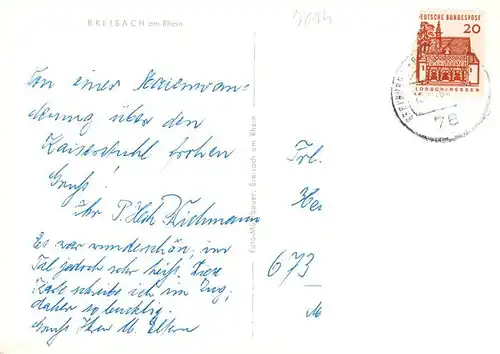 BREISACH am Rhein
5814
DEUTSCHE BUNDESPOST
20
LORSCH/HESSEN
78
Von einer Ferienwan-
derung über den
Kaiserstuhl frohen
Gruß!
Ihr P. Wichmann
Es war wunderschön, im
Tal jedoch sehr heiß. Diese
Karte schreibe ich im Zug,
daher so bucklig.
Gruß Ihrer M. Eltern
Breisach am Rhein
Frl.
He
673
M